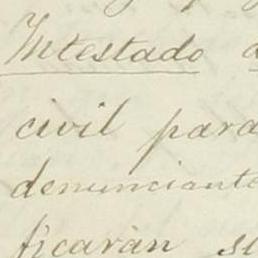 Intestado
civil para
denunciante
ficarán